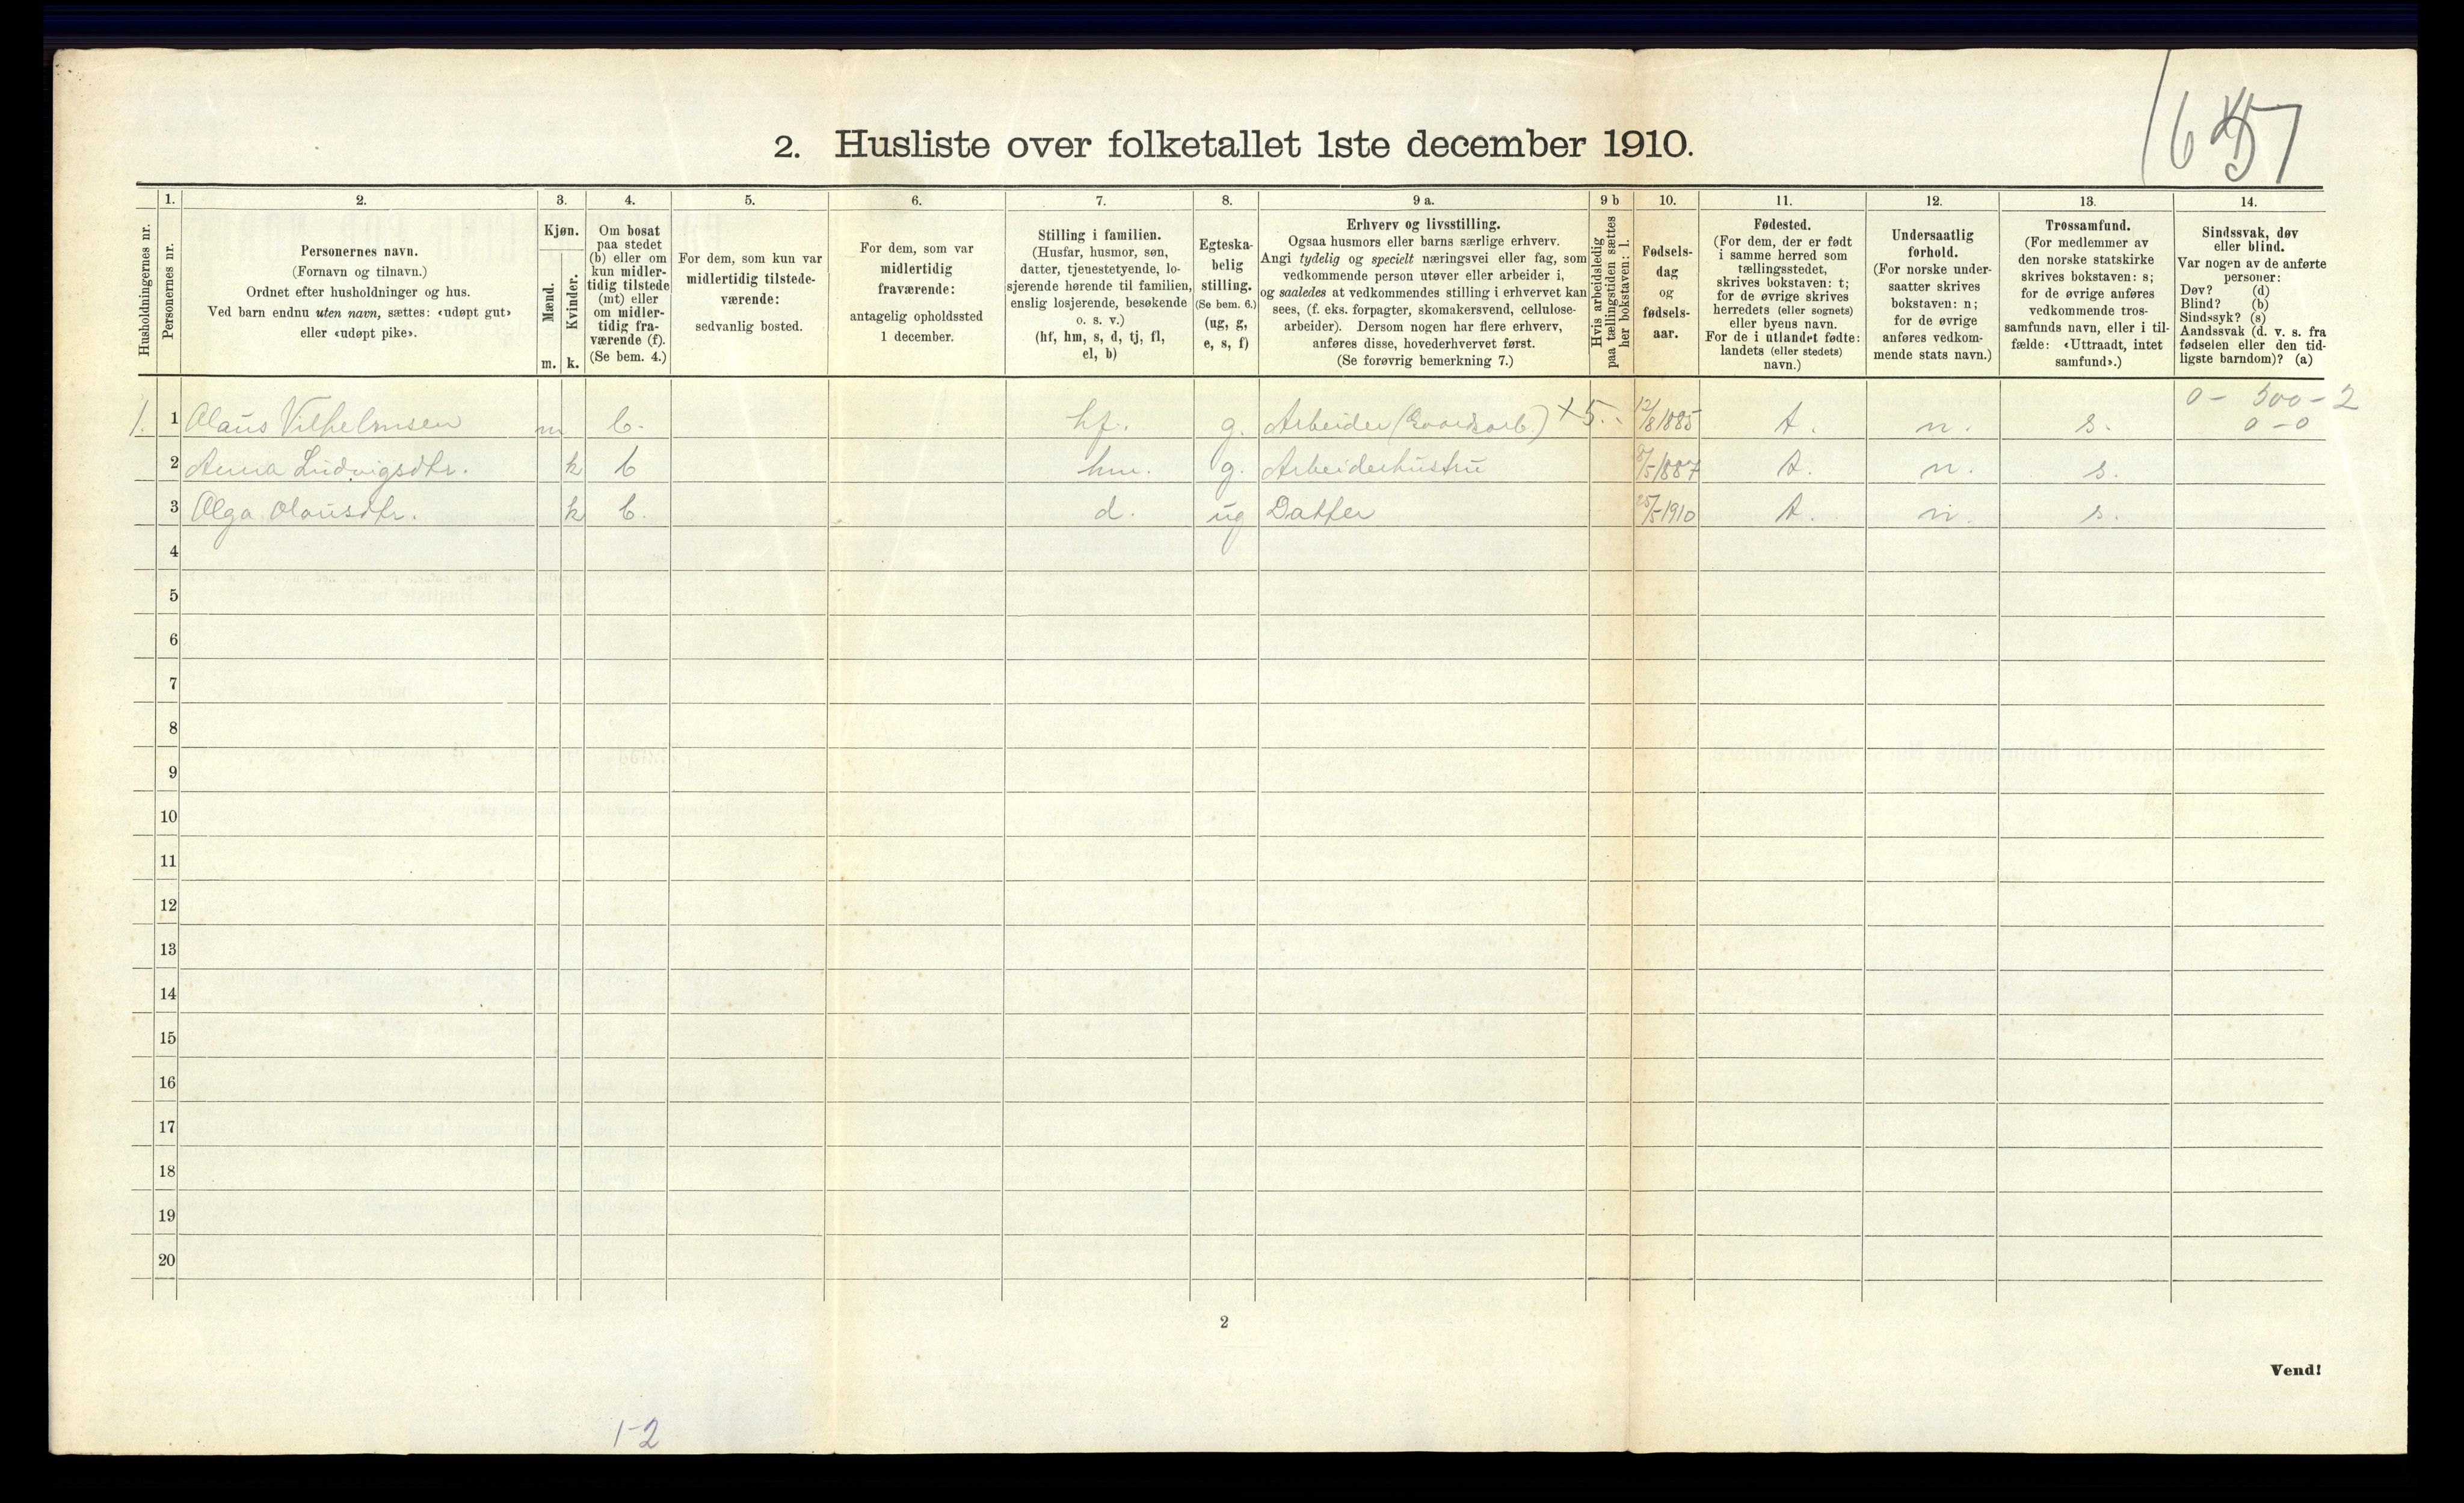 2. Husliste over folketallet 1ste december 1910.
Husholdningernes nr.
1.
Personernes nr.
2.
Personernes navn.
(Fornavn og tilnavn.)
Ordnet efter husholdninger og hus.
Ved barn endnu uten navn, sættes: «udøpt gut»
eller «udøpt pike».
3.
Kjøn.
Mænd.
Kvinder.
m. k.
4.
Om bosat
paa stedet
(b) eller om
kun midler-
tidig tilstede
(mt) eller
om midler-
tidig fra-
værende (f).
(Se bem. 4.)
5.
For dem, som kun var
midlertidig tilstede-
værende:
sedvanlig bosted.
6.
For dem, som var
midlertidig
fraværende:
antagelig opholdssted
1 december.
7.
Stilling i familien.
(Husfar, husmor, søn,
datter, tjenestetyende, lo-
sjerende hørende til familien,
enslig losjerende, besøkende
o. s. v.)
(hf, hm, s, d, tj, fl,
el, b)
8.
Egteska-
belig
stilling.
(Se bem. 6.)
(ug, g,
e, s, f)
9 a.
Erhverv og livsstilling.
Ogsaa husmors eller barns særlige erhverv.
Angi tydelig og specielt næringsvei eller fag, som
vedkommende person utøver eller arbeider i,
og saaledes at vedkommendes stilling i erhvervet kan
sees, (f. eks. forpagter, skomakersvend, cellulose-
arbeider). Dersom nogen har flere erhverv,
anføres disse, hovederhvervet først.
(Se forøvrig bemerkning 7.)
9 b
Hvis arbeidsledig
paa tællingstiden sættes
her bokstaven: l.
10.
Fødsels-
dag
og
fødsels-
aar.
11.
Fødested.
(For dem, der er født
i samme herred som
tællingsstedet,
skrives bokstaven: t;
for de øvrige skrives
herredets (eller sognets)
eller byens navn.
For de i utlandet fødte:
landets (eller stedets)
navn.)
12.
Undersaatlig
forhold.
(For norske under-
saatter skrives
bokstaven: n;
for de øvrige
anføres vedkom-
mende stats navn.)
13.
Trossamfund.
(For medlemmer av
den norske statskirke
skrives bokstaven: s;
for de øvrige anføres
vedkommende tros-
samfunds navn, eller i til-
fælde: «Uttraadt, intet
samfund».)
14.
Sindssvak, døv
eller blind.
Var nogen av de anførte
personer:
Døv? (d)
Blind? (b)
Sindssyk? (s)
Aandssvak (d. v. s. fra
fødselen eller den tid-
ligste barndom)? (a)
0 - 300 - 2
1. 1 Olaus Vilhelmsen m b. hf. g. Arbeider (Gaardsarb.) +5. 12/8 1885 t. n. s. 0 - 0
2 Anna Ludvigsdtr. k b hm. g. Arbeiderhustru 8/5 1887 t. n. s.
3 Olga Olausdtr. k b. d. ug Datter 25/5-1910 t. n. s.
4
5
6
7
8
9
10
11
12
13
14
15
16
17
18
19
20
2
Vend!
1-2